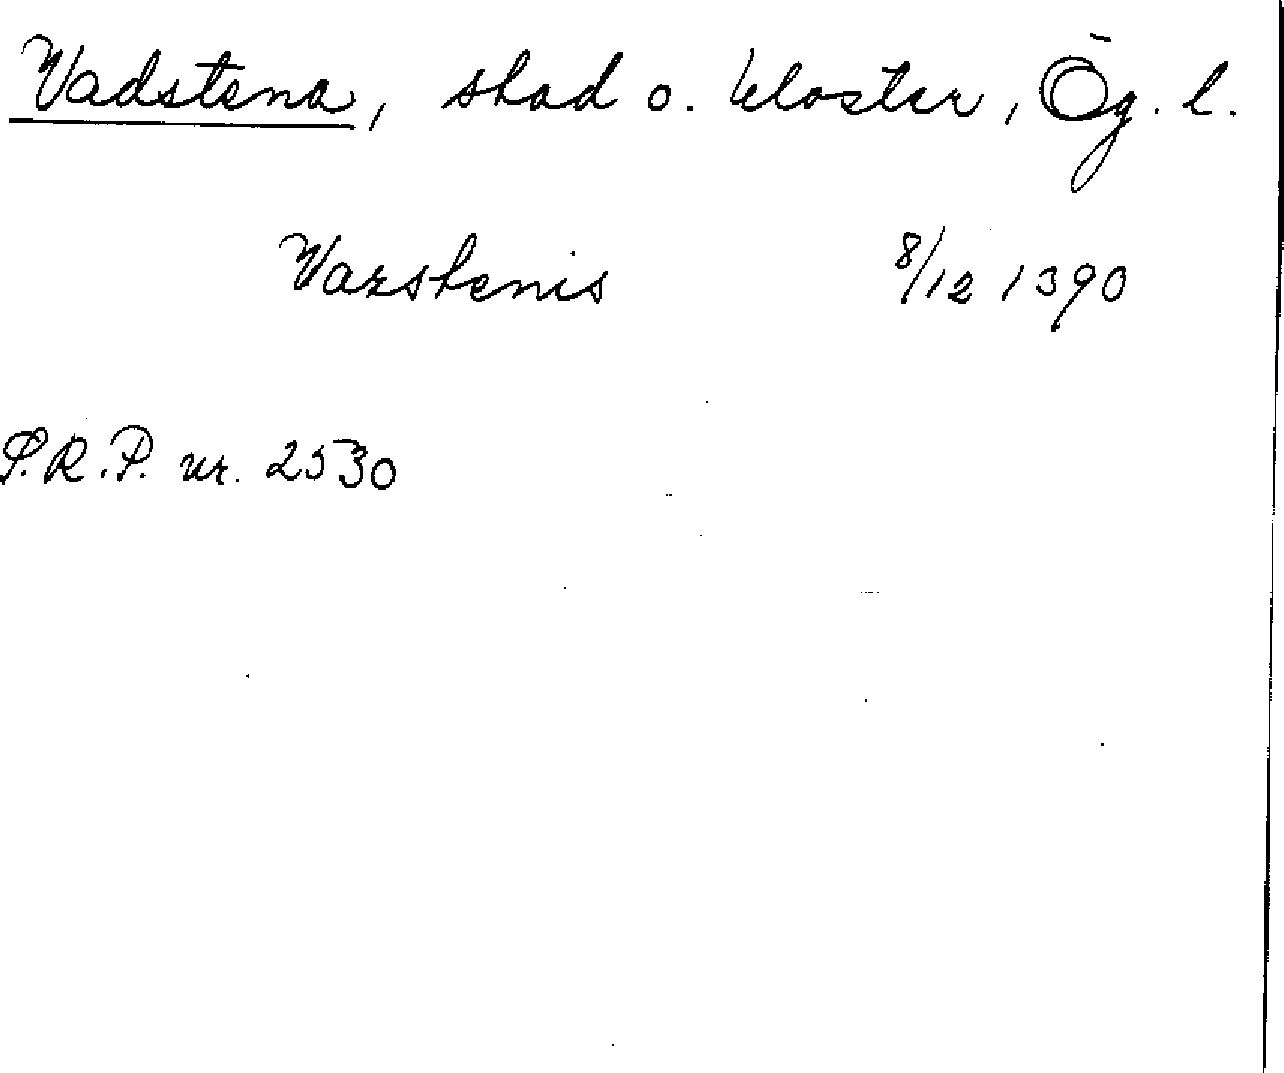 Vadstena, stad o. kloster, Ög. l.
Wazstenis 8/12 1390
S.R.P. nr. 2530